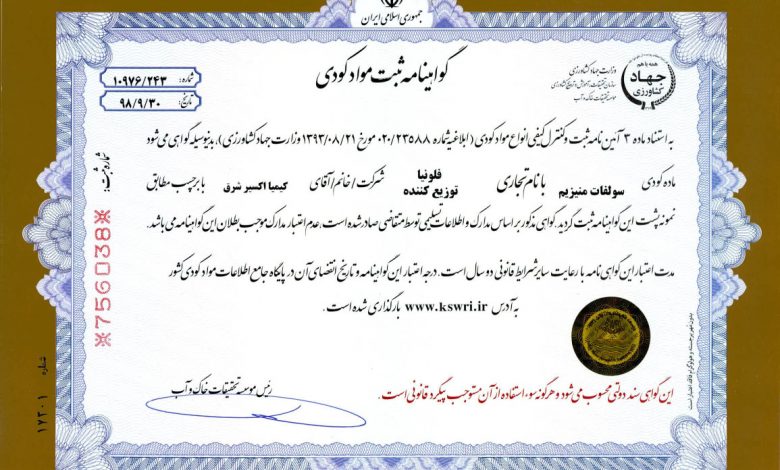 جمهوری اسلامی ایران
همه با هم
جهاد
کشاورزی
وزارت جهاد کشاورزی
سازمان تحقیقات، آموزش و ترویج کشاورزی
موسسه تحقیقات خاک و آب
گواهینامه ثبت مواد کودی
شماره: ۱۰۹۷۶/۲۴۳
تاریخ: ۹۸/۹/۳۰
به استناد ماده ۳ آئین نامه ثبت و کنترل کیفی انواع مواد کودی (ابلاغیه شماره ۰۲۰/۲۳۵۸۸ مورخ ۱۳۹۳/۰۸/۲۱ وزارت جهاد کشاورزی)، بدینوسیله گواهی می شود
ماده کودی سولفات منیزیم با نام تجاری فلونیا توزیع کننده شرکت/خانم/آقای کیمیا اکسیر شرق با برچسب مطابق
نمونه پشت این گواهینامه ثبت گردید. گواهی مذکور بر اساس مدارک و اطلاعات تسلیمی توسط متقاضی صادر شده است. عدم اعتبار مدارک موجب بطلان این گواهینامه می باشد.
مدت اعتبار این گواهی نامه با رعایت سایر شرایط قانونی دو سال است. درجه اعتبار این گواهینامه و تاریخ انقضای آن در پایگاه جامع اطلاعات مواد کودی کشور
به آدرس www.kswri.ir بارگذاری شده است.
رئیس موسسه تحقیقات خاک و آب
این گواهی سند دولتی محسوب می شود و هرگونه سوء استفاده از آن مستوجب پیگرد قانونی است.
شماره ثبت:
※756038※
شماره ۱۷۳۰۱
بدون مهر برجسته و هولوگرام فاقد اعتبار است